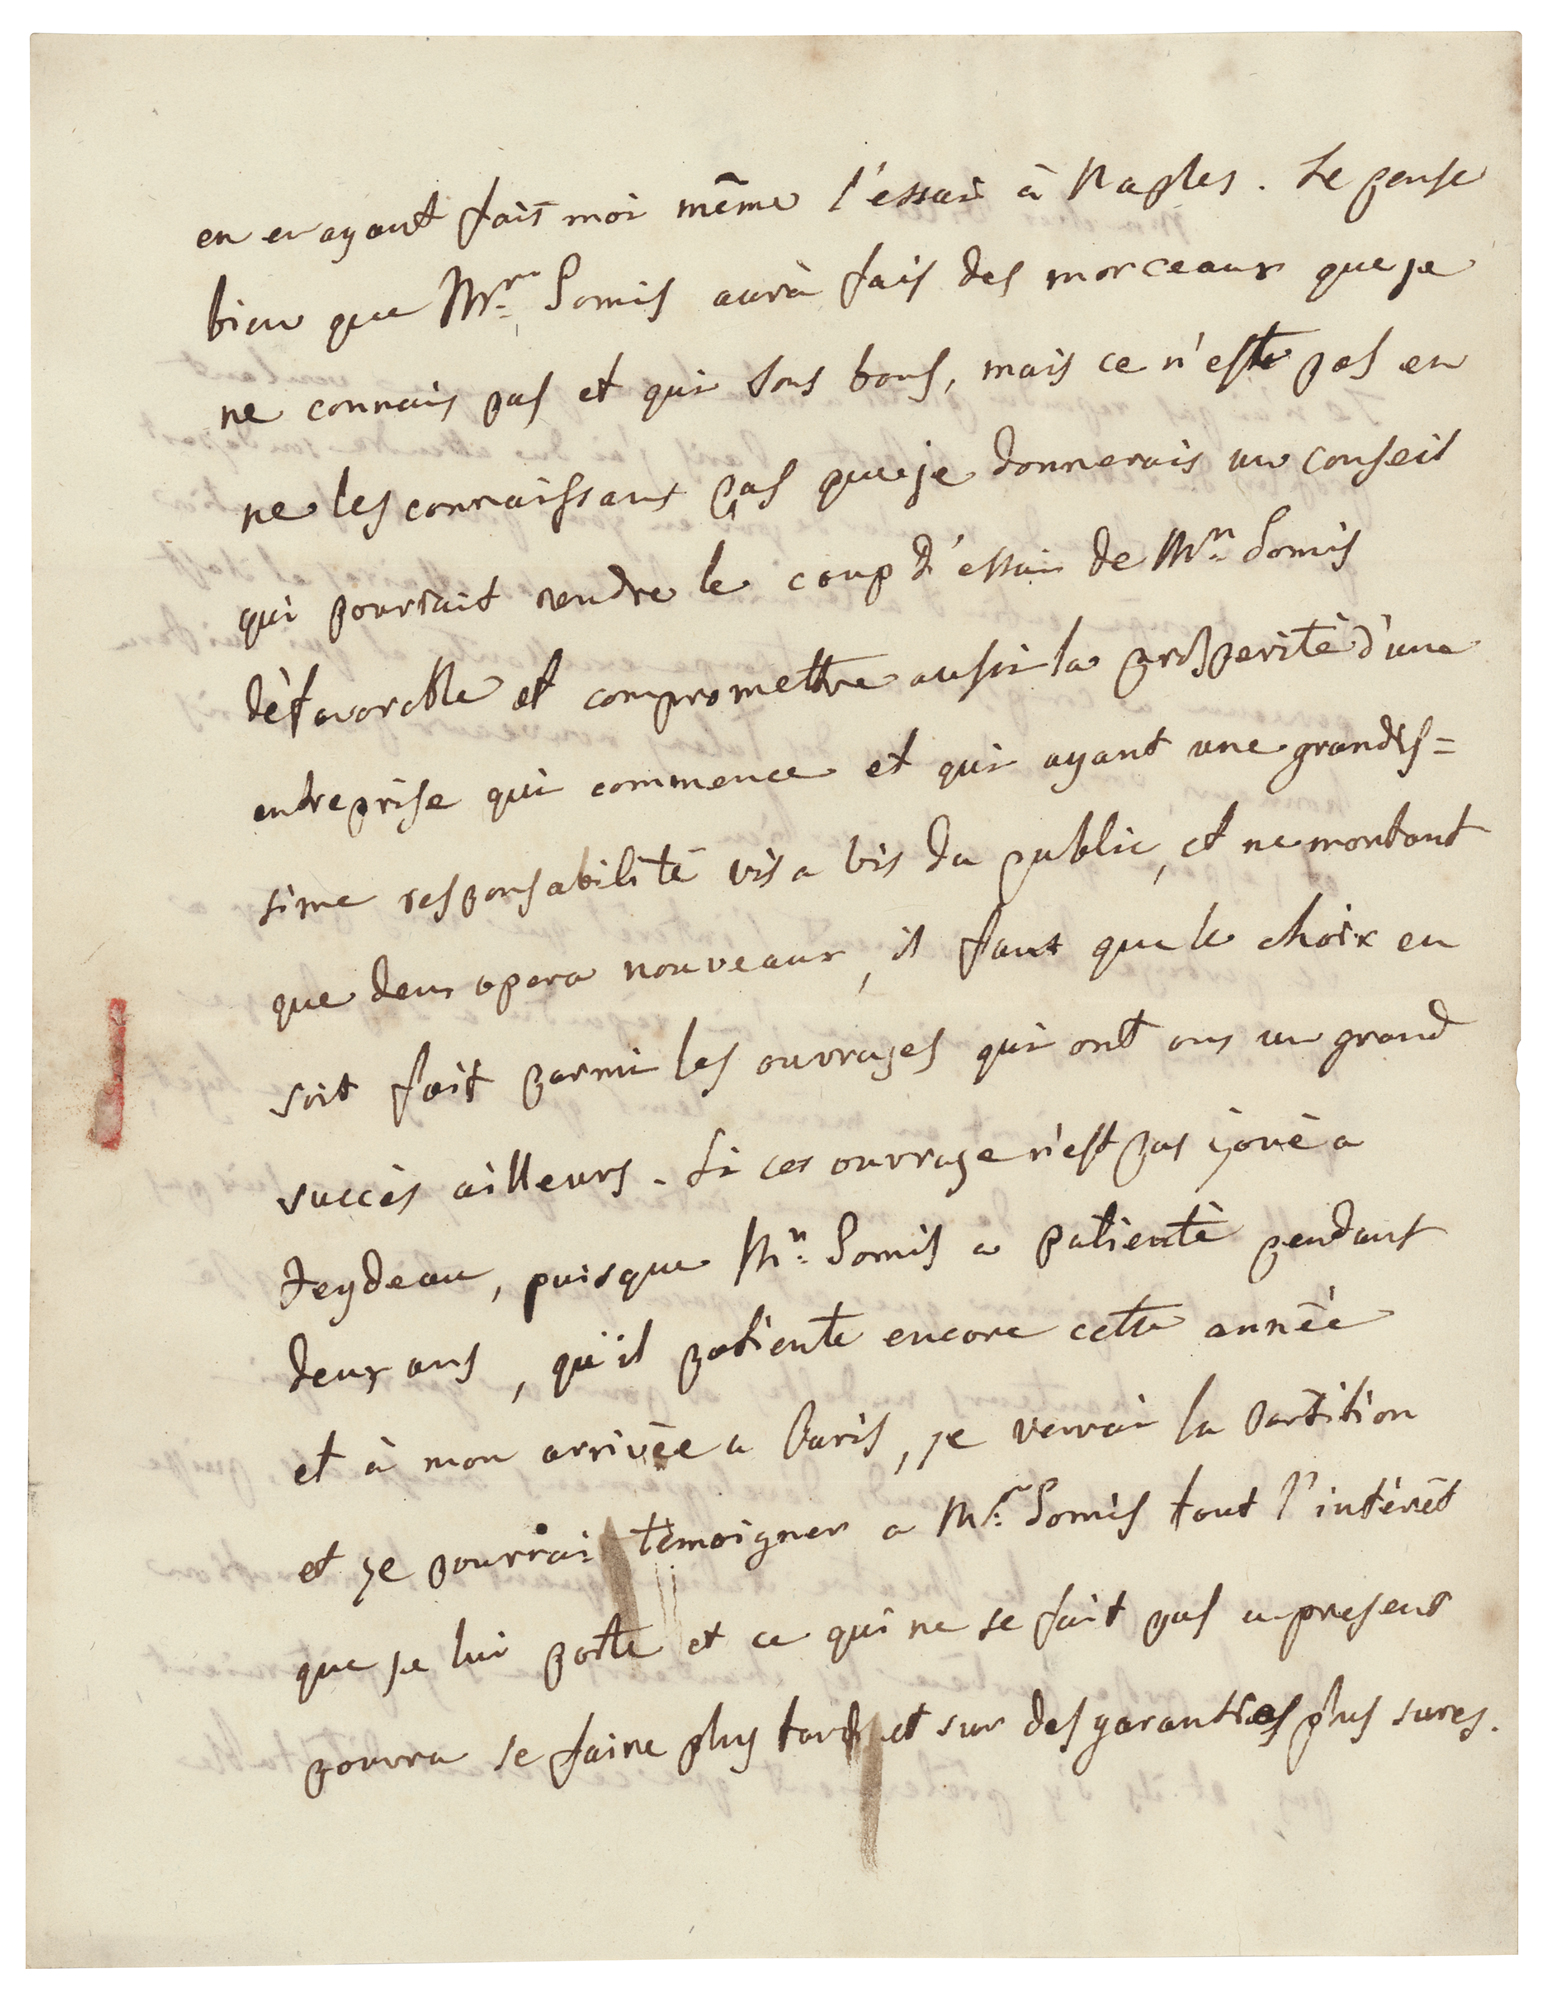 en en ayant fait moi même l'essai à Naples. Je pense
bien que Mr. Somis aurà fais des morceaux que je
ne connais pas et qui sons bons, mais ce n'este pas en
ne les connaissant pas que je donnerais un conseil
qui pourrait rendre le coup d'essai de Mr. Somis
dèfavorable et compromettre aussi la prosperitè d'une
entreprise qui commence et qui ayant une grandis=
sime responsabilitè vis a vis du public, et ne montant
que deux opera nouveaux, il faut que le choix en
soit fait parmi les ouvrages qui ont eus un grand
succès ailleurs. Si cet ouvrage n'est pas jouè a
Feydeau, puisque Mr. Somis a patientè pendant
deux ans, qu'il patiente encore cette annèe
et à mon arrivèe a Paris, je verrai la partition
et je pourrai tèmoigner a Mr. Somis tout l'intèrêt
que je lui porte et ce qui ne se fait pas a present
pourra se faire plus tard, et sur des garanties plus sures.